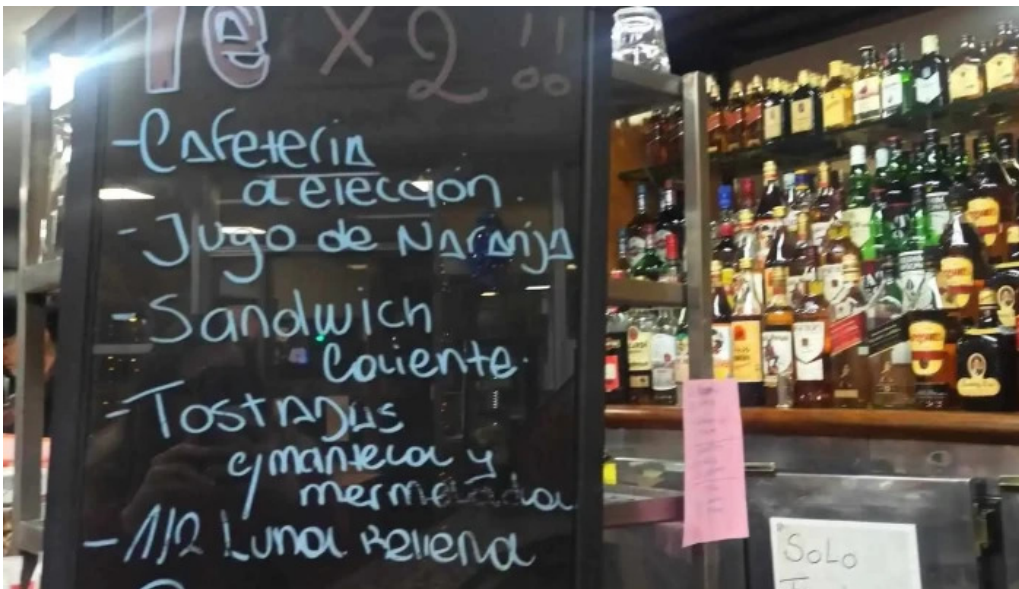 Te x 2!!
- Cafeteria
a elección.
- Jugo de Naranja
- Sandwich
Caliente.
- Tostadas
c/manteca y
mermelada
- 1/2 Luna Rellena
SoLo